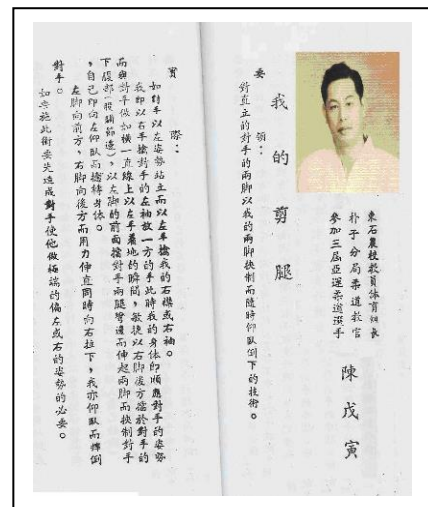 東石農校教員体育組長
朴子分局柔道教官
參加三屆亞運柔道選手
陳戊寅
我的剪腿
要領：
對直立的對手的兩脚以我的兩脚挾制而隨時仰臥倒下的技術。
實際：
如對手以左姿勢站立而以左手握我的右襟或右袖。
我即以右手握對手的左袖放一方的手此時我的身体即順應對手的姿勢
而與對手做如横一直線上以左手着地的瞬間，敏捷以右脚後方擋於對手的
下腹部（股關節邊），以左脚的前面擋對手兩腿彎邊而伸起兩脚而挾制對手
，自己即向左仰臥而擰轉身体。
左脚向前方，右脚向後方而用力伸直同時向右拉下，我亦仰臥而摔倒
對手。
如要施此術要先造成對手使他做極端的偏左或右的姿勢的必要。